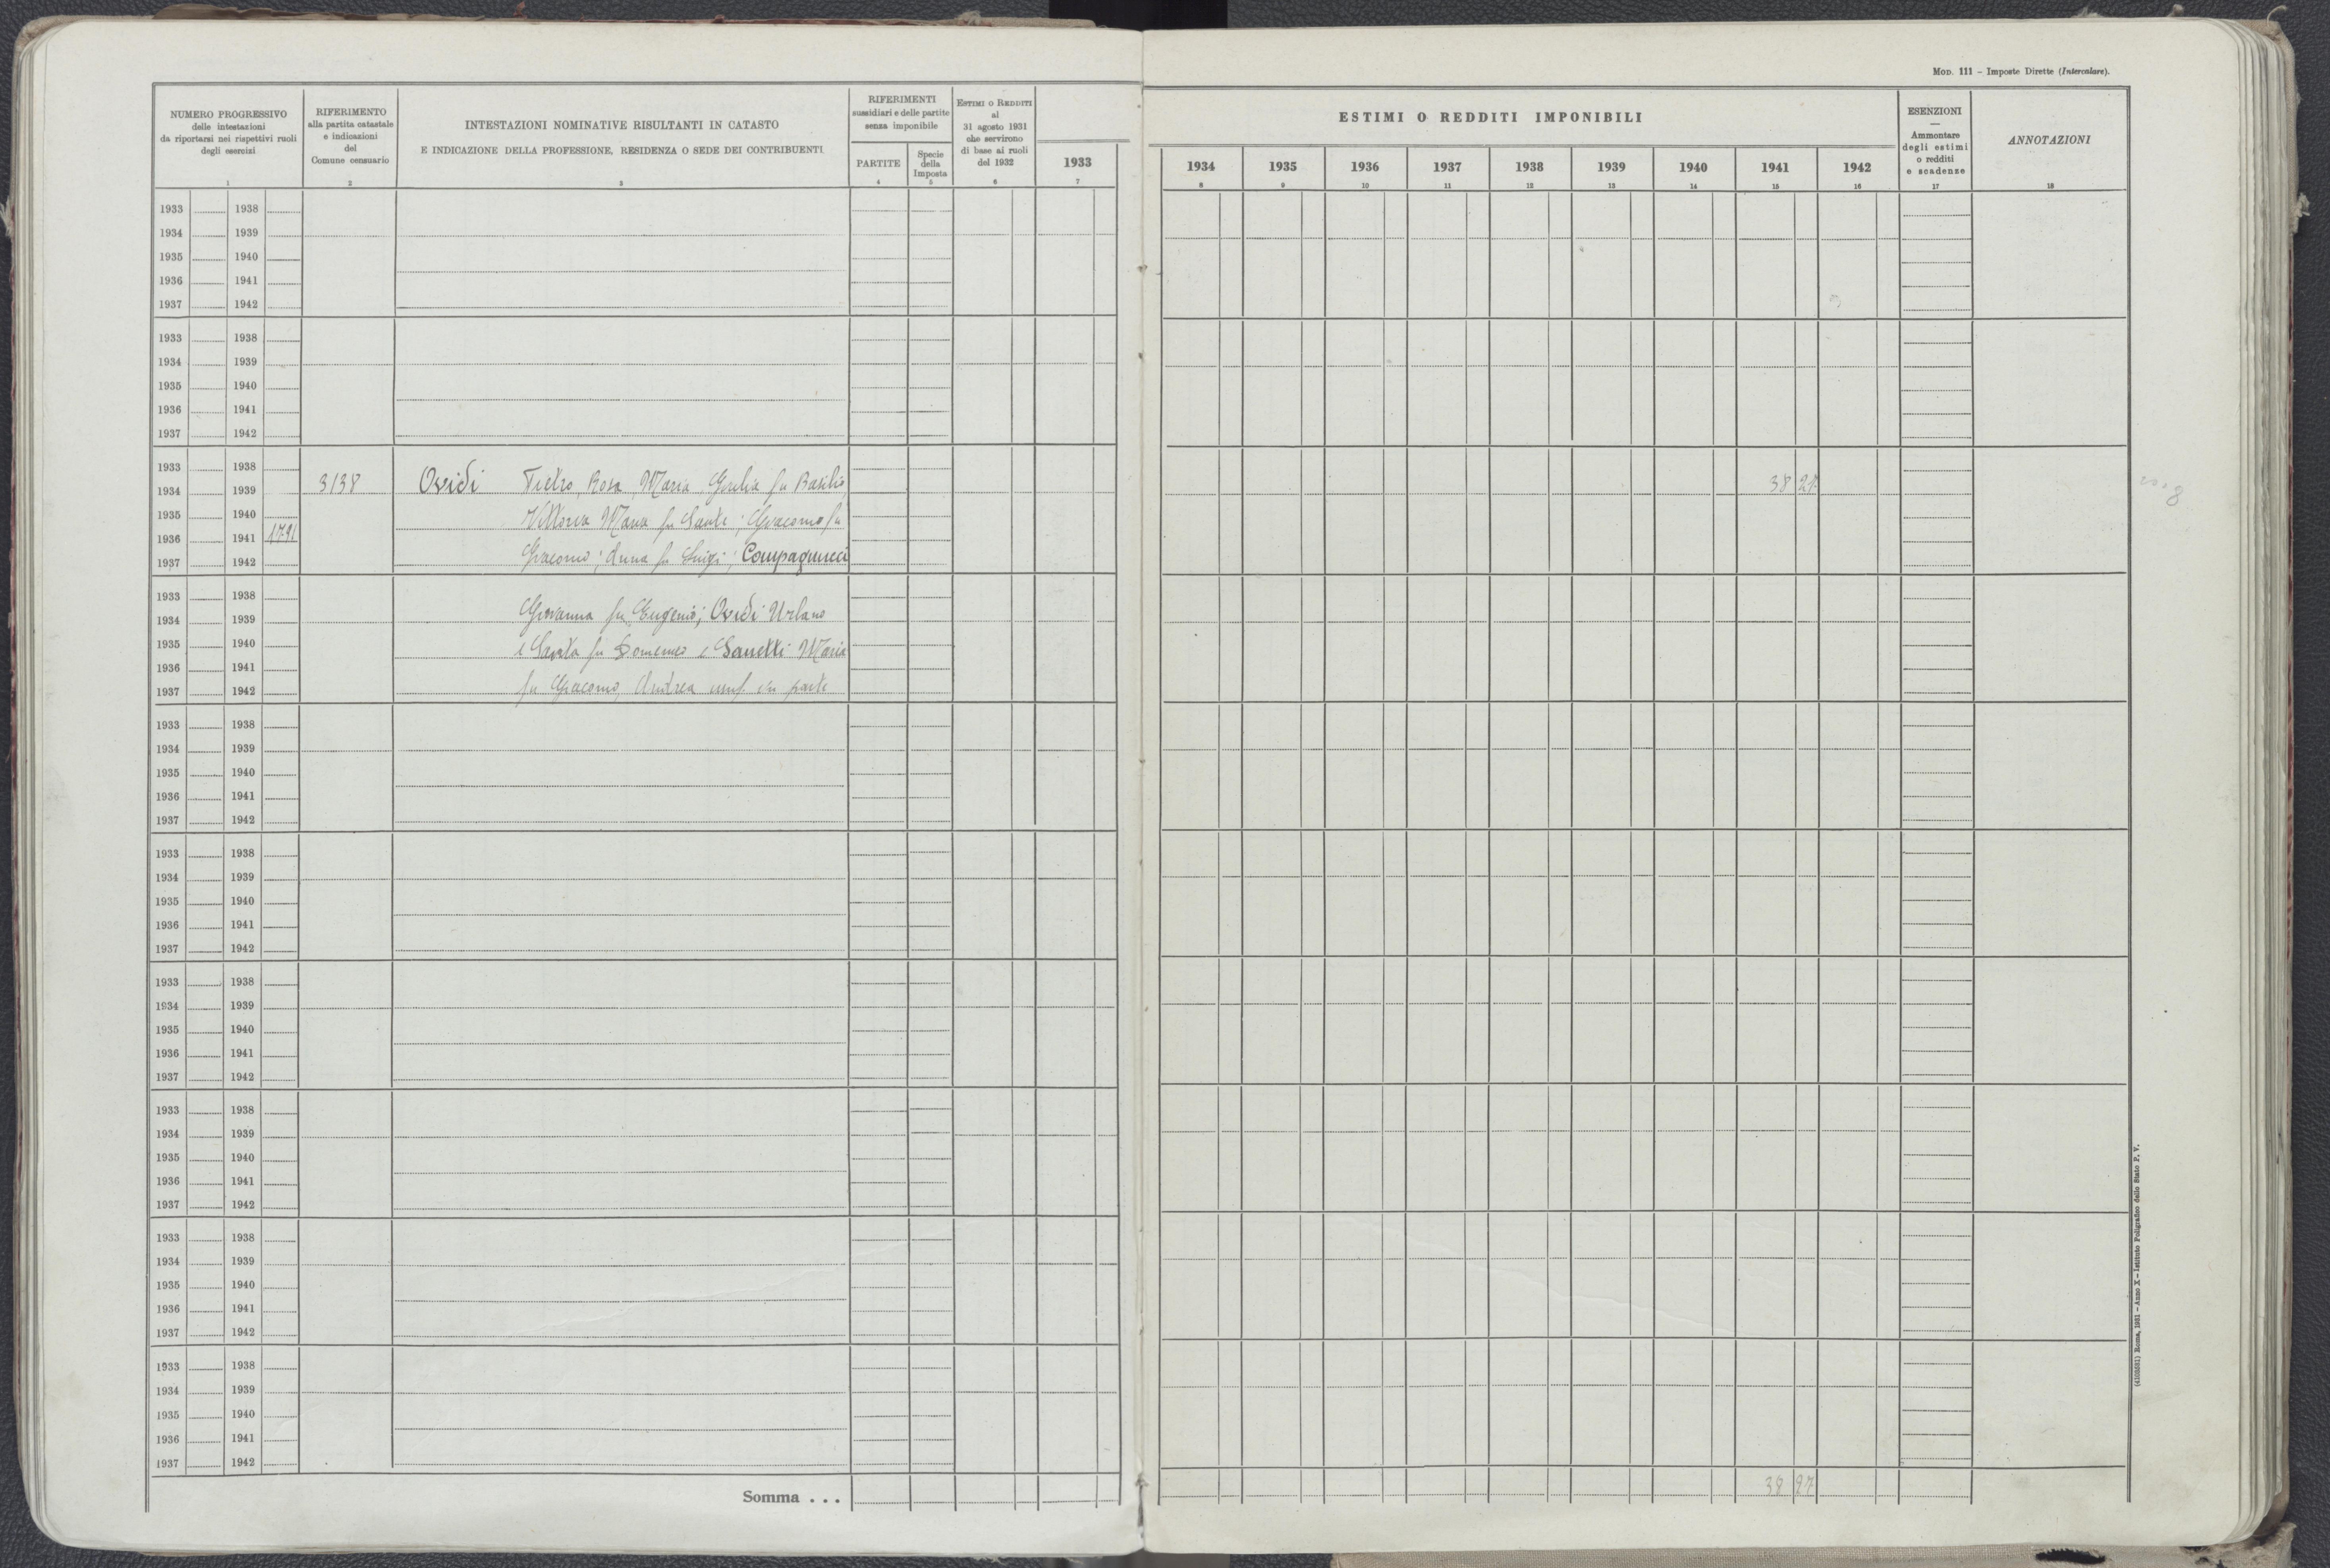 Mod. 111 – Imposte Dirette (Intercalare).
NUMERO PROGRESSIVO
delle intestazioni
da riportarsi nei rispettivi ruoli
degli esercizi
1
RIFERIMENTO
alla partita catastale
e indicazioni
del
Comune censuario
2
INTESTAZIONI NOMINATIVE RISULTANTI IN CATASTO
E INDICAZIONE DELLA PROFESSIONE, RESIDENZA O SEDE DEI CONTRIBUENTI
3
RIFERIMENTI
sussidiari e delle partite
senza imponibile
PARTITE
4
Specie
della
Imposta
5
Estimi o Redditi
al
31 agosto 1931
che servirono
di base ai ruoli
del 1932
6
1933
7
ESTIMI O REDDITI IMPONIBILI
1934 1935 1936 1937 1938 1939 1940 1941 1942
8 9 10 11 12 13 14 15 16
ESENZIONI
—
Ammontare
degli estimi
o redditi
e scadenze
17
ANNOTAZIONI
18
1933 1938
1934 1939
1935 1940
1936 1941
1937 1942
1933 1938
1934 1939
1935 1940
1936 1941
1937 1942
1933 1938
1934 1939 3138 Ovidi Pietro, Rosa, Maria, Giulia fu Basilio, 38 27
1935 1940 Vittoria Maria fu Sante; Giacomo fu
1936 1941 1791
1937 1942 Giacomo; Anna fu Luigi; Compagnucci
1933 1938
1934 1939 Giovanna fu Eugenio; Ovidi Urbano
1935 1940 e Santa fu Domenico e Sanetti Maria
1936 1941
1937 1942 fu Giacomo, Andrea usuf. in parte
1933 1938
1934 1939
1935 1940
1936 1941
1937 1942
1933 1938
1934 1939
1935 1940
1936 1941
1937 1942
1933 1938
1934 1939
1935 1940
1936 1941
1937 1942
1933 1938
1934 1939
1935 1940
1936 1941
1937 1942
1933 1938
1934 1939
1935 1940
1936 1941
1937 1942
1933 1938
1934 1939
1935 1940
1936 1941
1937 1942
Somma . . . 38 27
(4103581) Roma, 1931 – Anno X – Istituto Poligrafico dello Stato P. V.